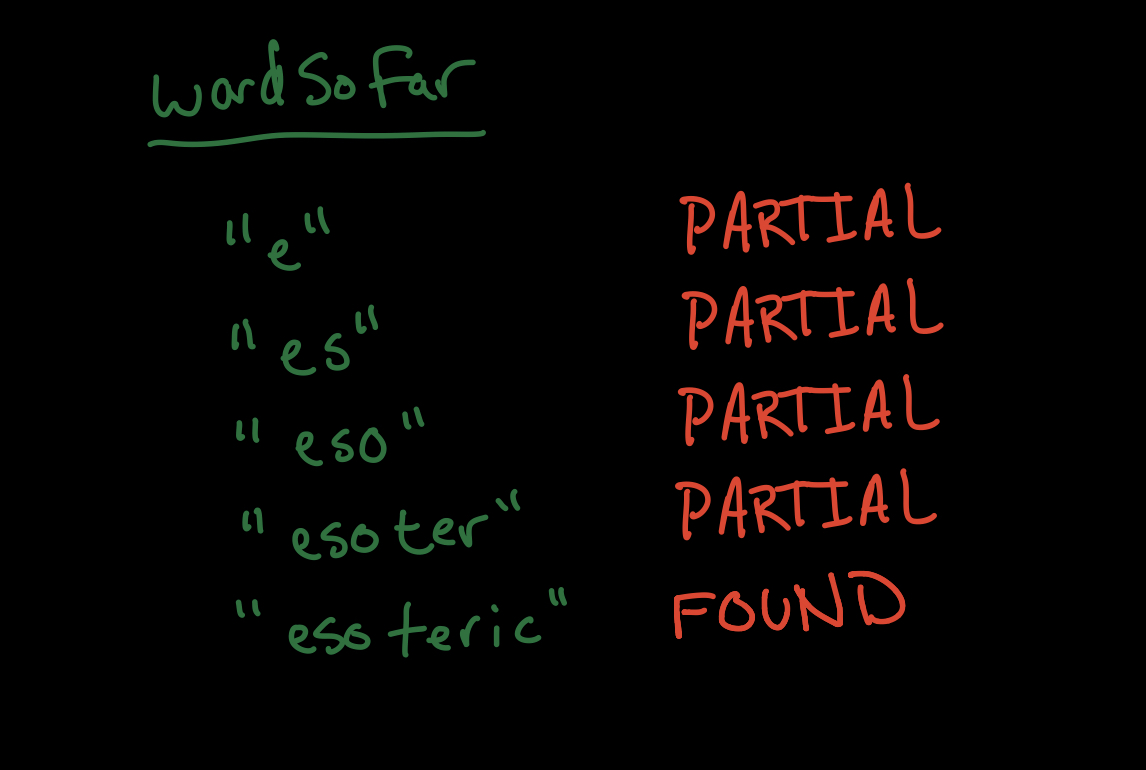 wordSoFar
"e" PARTIAL
"es" PARTIAL
"eso" PARTIAL
"esoter" PARTIAL
"esoteric" FOUND